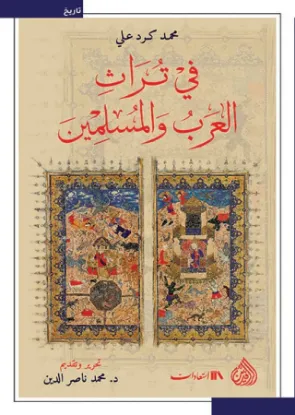 تاريخ
محمد كرد علي
في تُرَاثِ
العَرَبِ وَالمُسْلِمِينَ
تحرير وتقديم
د. محمد ناصر الدين
استعادات
الرافدين